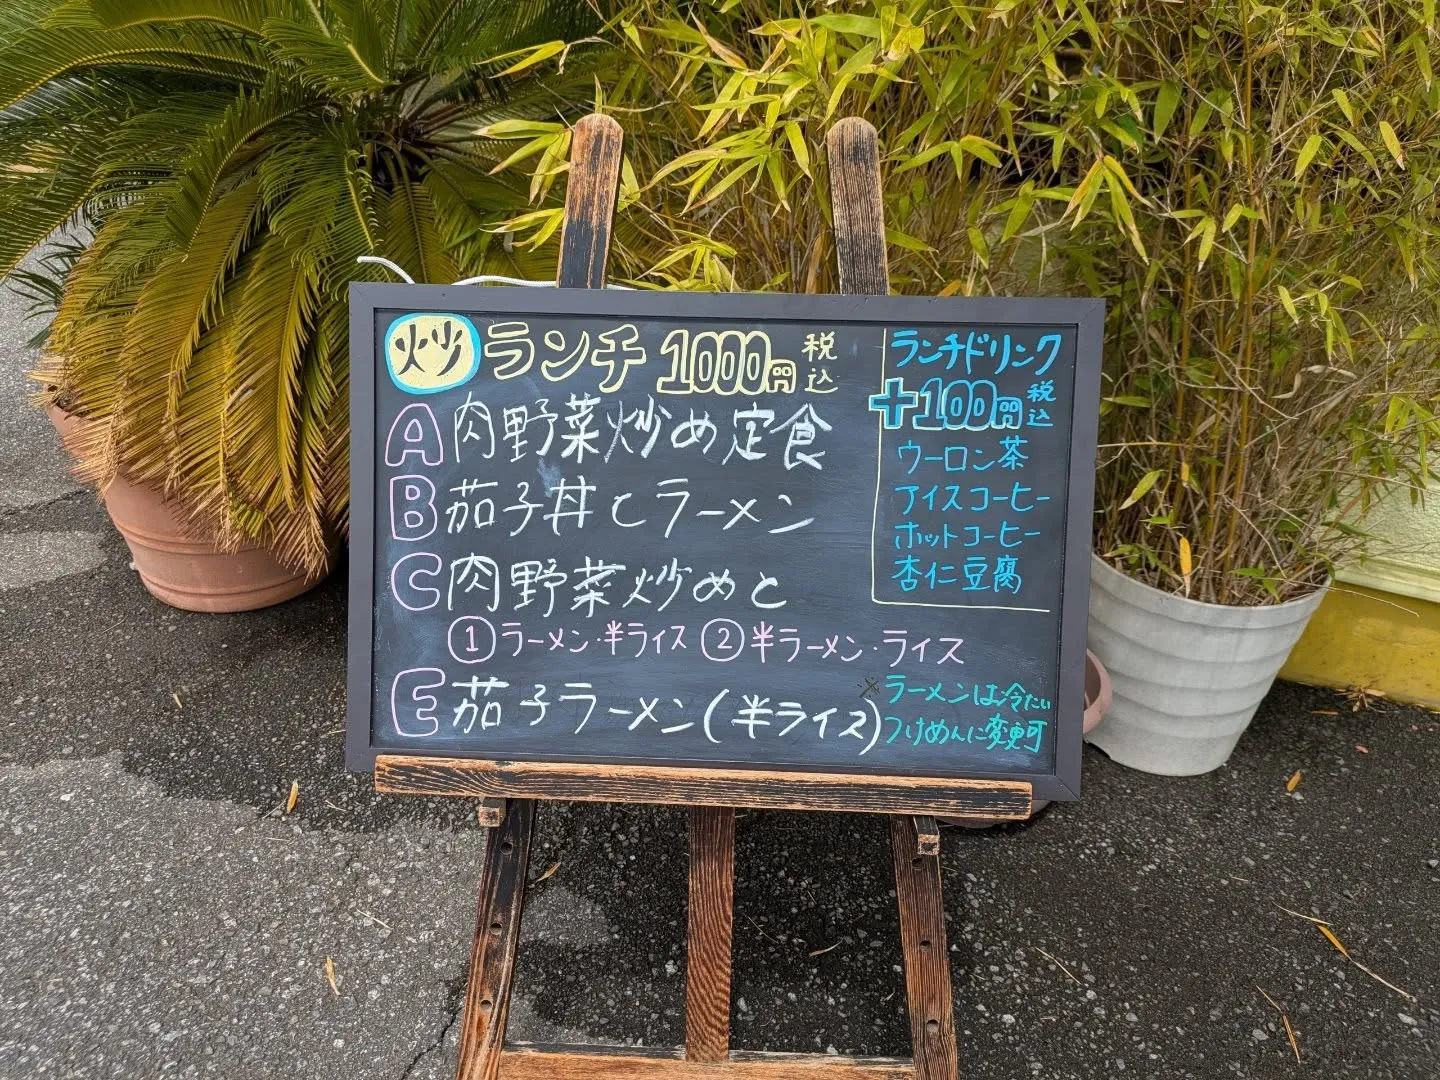 炒 ランチ 1000円 税込
A 肉野菜炒め定食
B 茄子丼とラーメン
C 肉野菜炒めと
①ラーメン・半ライス ②半ラーメン・ライス
E 茄子ラーメン(半ライス)
※ラーメンは冷たい
つけめんに変更可
ランチドリンク
+100円 税込
ウーロン茶
アイスコーヒー
ホットコーヒー
杏仁豆腐